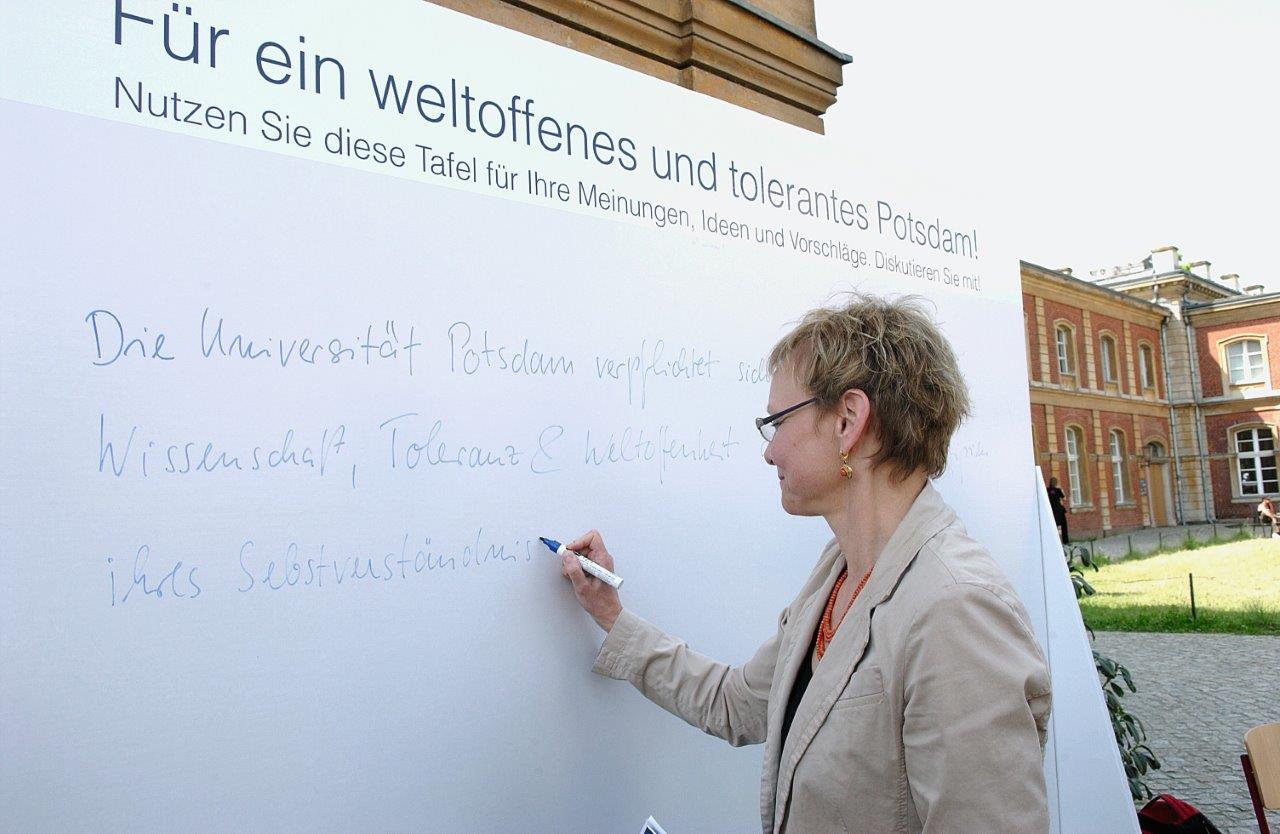 Für ein weltoffenes und tolerantes Potsdam!
Nutzen Sie diese Tafel für Ihre Meinungen, Ideen und Vorschläge. Diskutieren Sie mit!
Die Universität Potsdam verpflichtet sich
Wissenschaft, Toleranz & Weltoffenheit
ihres Selbstverständnis